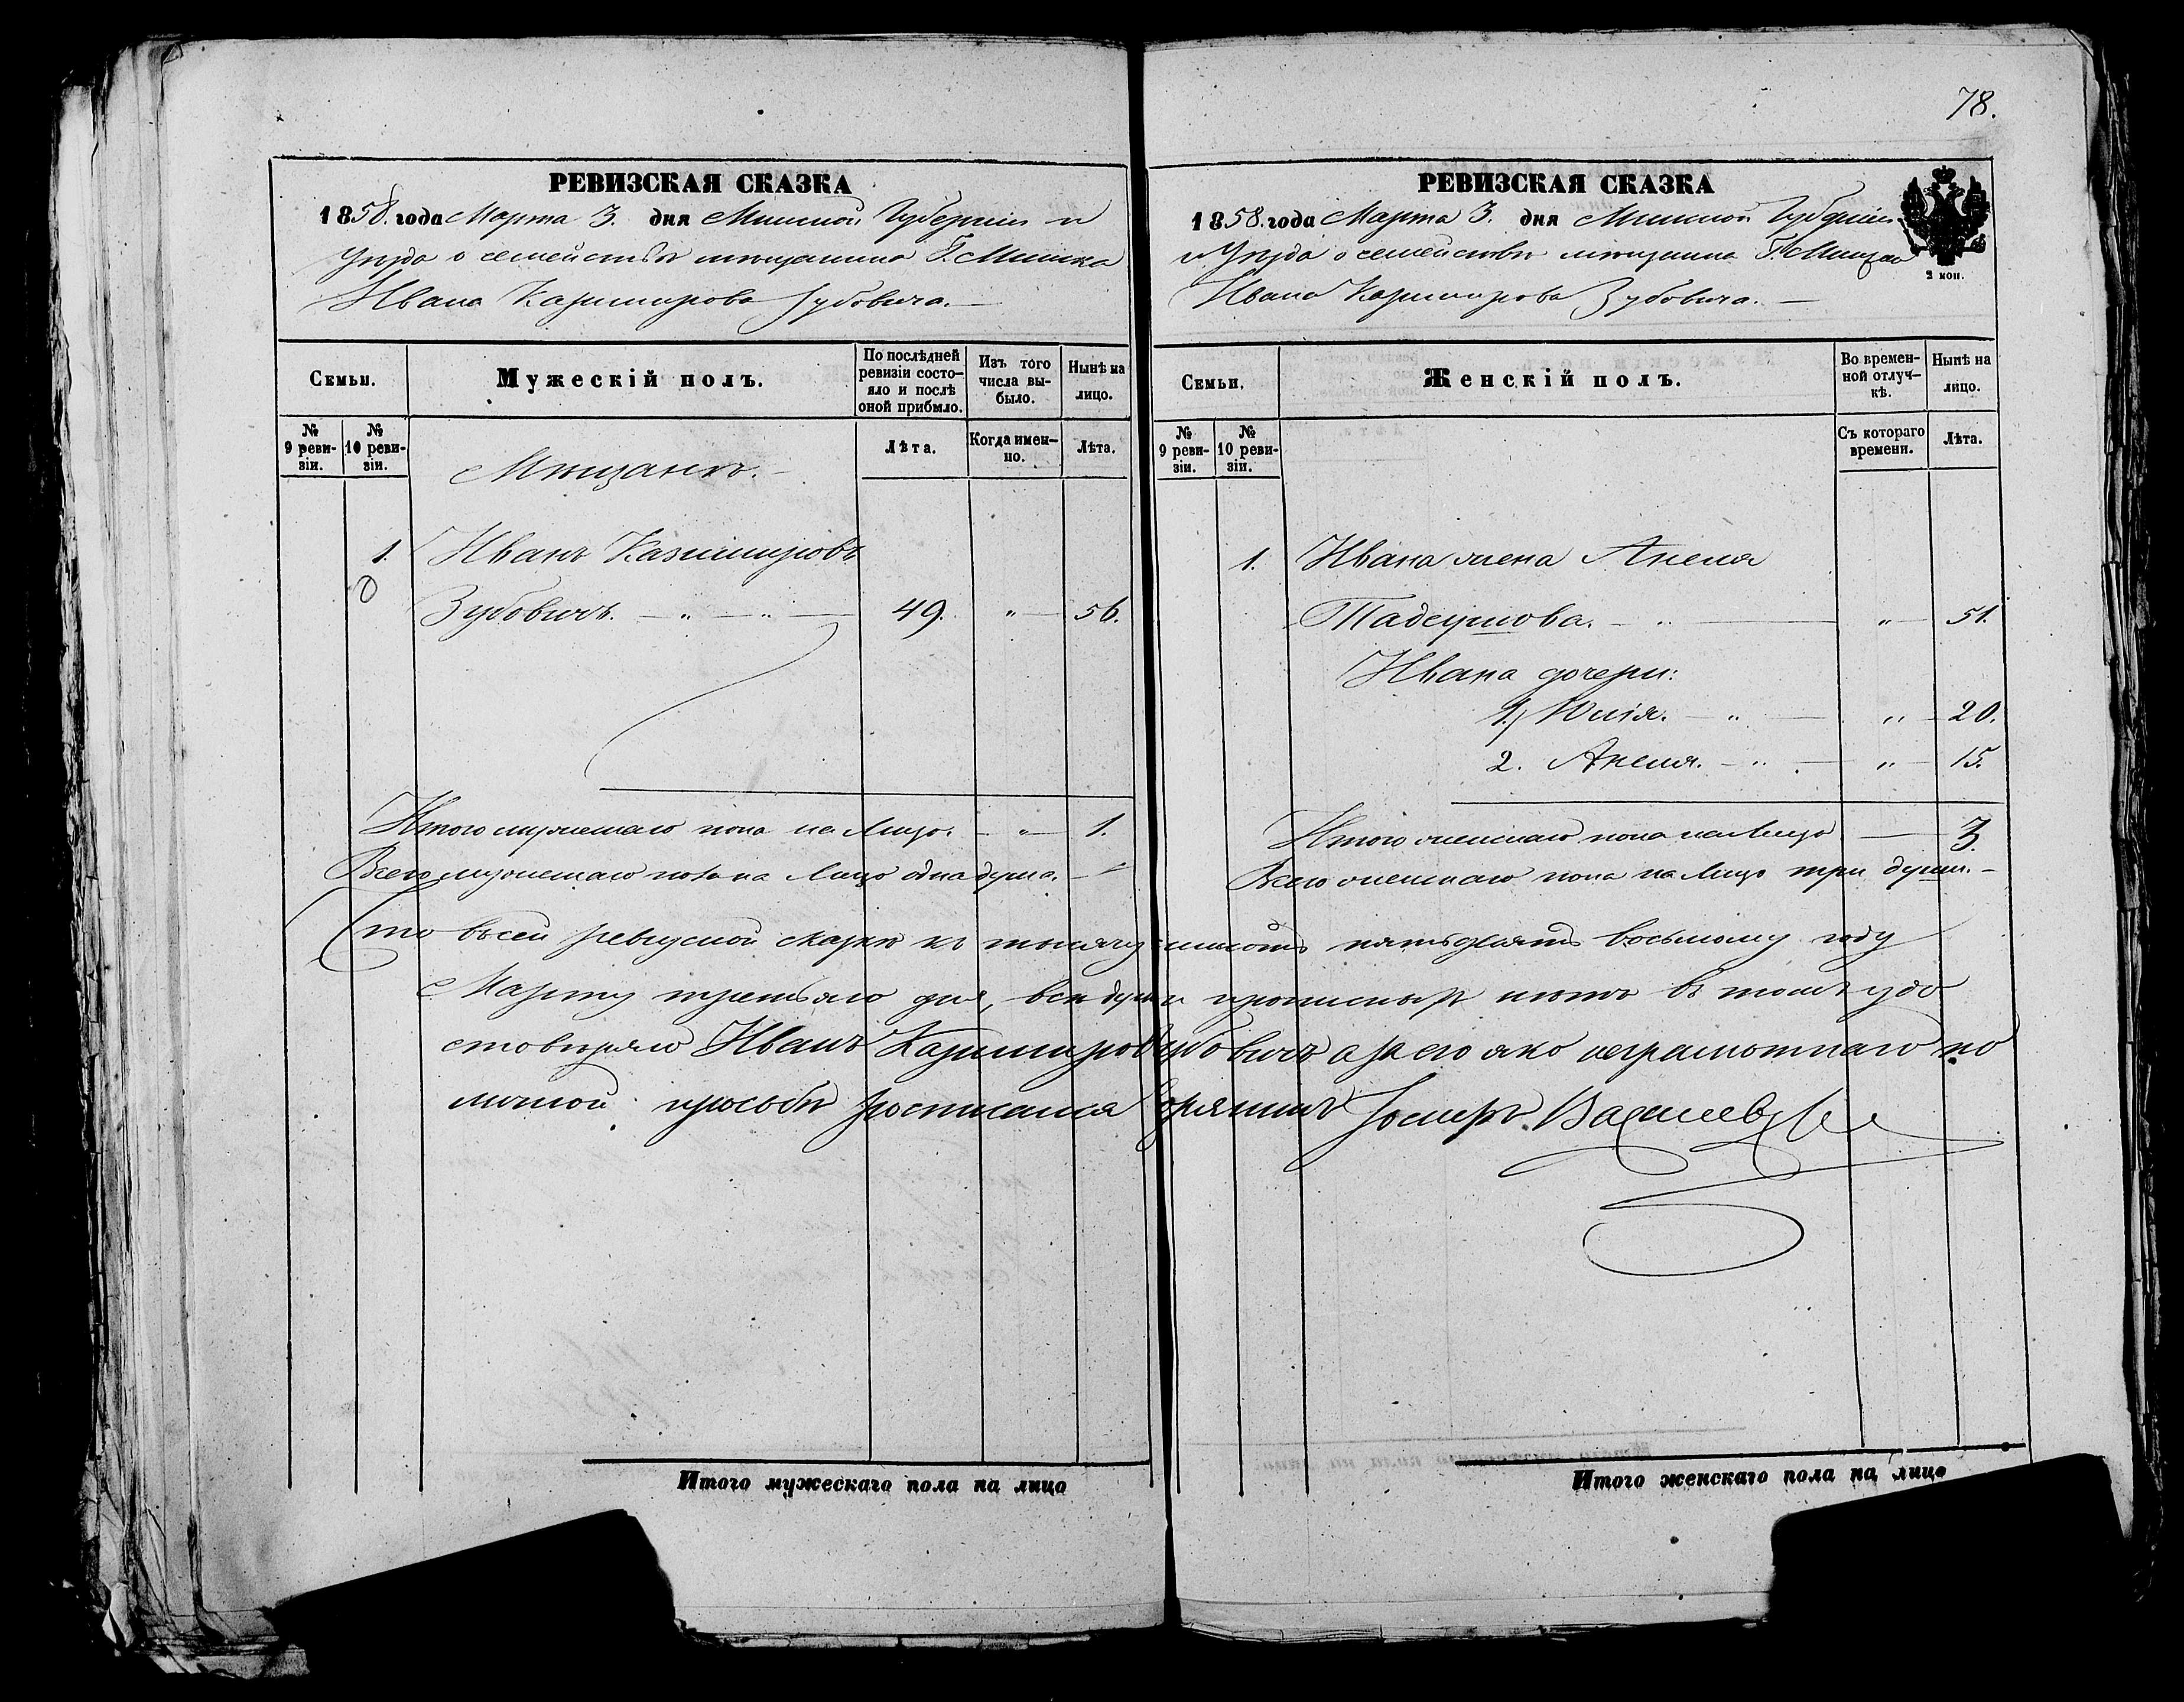 78.
РЕВИЗСКАЯ СКАЗКА
1858. года Марта 3. дня Минской Губерніи и
Уѣзда о семействѣ мѣщанина Г. Минска
Ивана Казимирова Зубовича.
Семьи.
Мужескій полъ.
По послѣдней ревизіи состояло и послѣ оной прибыло.
Изъ того числа выбыло.
Нынѣ на лицо.
№ 9 ревизіи.
№ 10 ревизіи.
Мѣщанинъ.
Лѣта.
Когда именно.
Лѣта.
1. Иванъ Казимировъ
Зубовичъ. — „ — „ — 49. „ — 56.
Итого мужескаго пола на лицо. — „ — 1.
Всего мужескаго пола на лицо одна душа.
РЕВИЗСКАЯ СКАЗКА
1858. года Марта 3. дня Минской Губерніи
и Уѣзда о семействѣ мѣщанина Г. Минска
Ивана Казимирова Зубовича. —
2 коп.
Семьи.
Женскій полъ.
Во временной отлучкѣ.
Нынѣ на лицо.
№ 9 ревизіи.
№ 10 ревизіи.
Съ котораго времени.
Лѣта.
1. Ивана жена Анеля
Тадеушова. — „ — „ — 51.
Ивана дочери:
1) Юлія. — „ — „ — 20.
2. Анеля. — „ — „ — 15.
Итого женскаго пола на лицо — 3.
Всего женскаго пола на лицо три души. —
Что въ сей ревизской сказкѣ къ тысячу пятьдесятъ восьмому году
Марту третьяго дня, всѣ души прописныхъ нѣтъ въ томъ удо
стовѣряю Иванъ Казимировъ Зубовичъ а за его яко неграмотнаго по
личной просьбѣ росписался Дворянинъ Іосифъ
Итого мужескаго пола на лицо
Итого женскаго пола на лицо